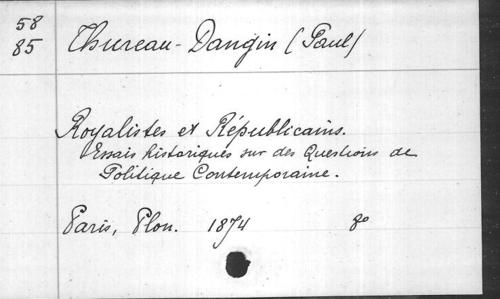 58
85
Thureau-Dangin (Paul)
Royalistes et Républicains.
Essais historiques sur des Questions de
Politique Contemporaine.
Paris, Plon. 1874 8o